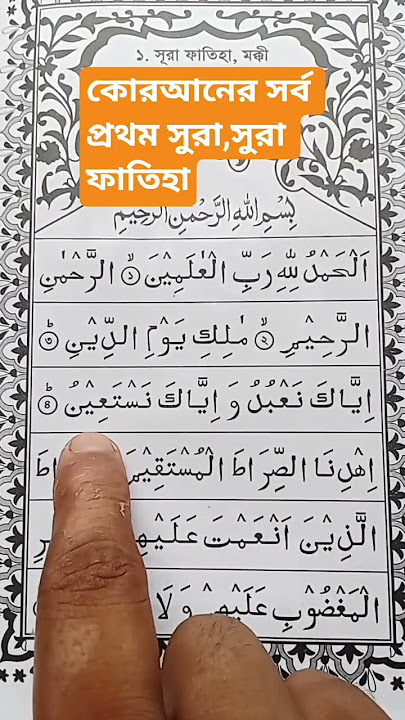 ১. সূরা ফাতিহা, মক্কী
কোরআনের সর্ব
প্রথম সুরা,সুরা
ফাতিহা
بِسْمِ اللهِ الرَّحْمٰنِ الرَّحِيْمِ
اَلْحَمْدُ لِلّٰهِ رَبِّ الْعٰلَمِيْنَ ۙ﴿١﴾ الرَّحْمٰنِ
الرَّحِيْمِ ۙ﴿٢﴾ مٰلِكِ يَوْمِ الدِّيْنِ ؕ﴿٣﴾
اِيَّاكَ نَعْبُدُ وَ اِيَّاكَ نَسْتَعِيْنُ ؕ﴿٤﴾
اِهْدِنَا الصِّرَاطَ الْمُسْتَقِيْمَ
الَّذِيْنَ اَنْعَمْتَ عَلَيْهِمْ
الْمَغْضُوْبِ عَلَيْهِمْ وَ لَا